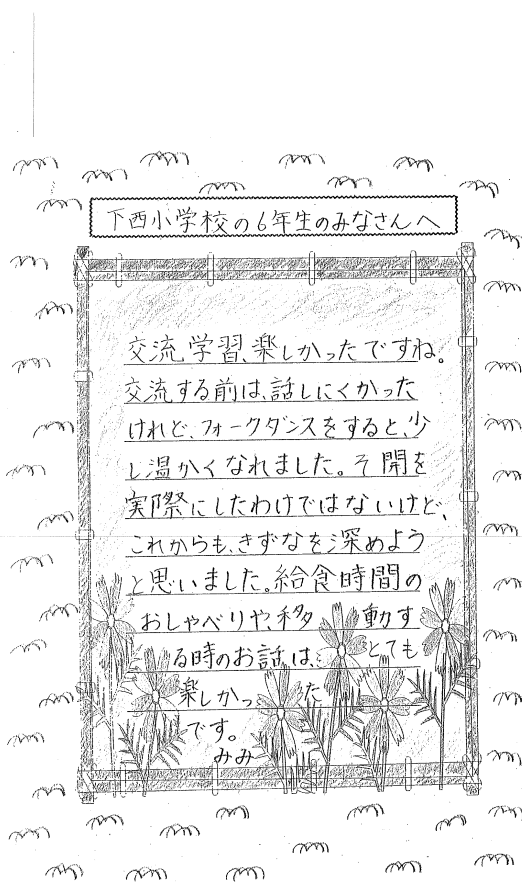 下西小学校の6年生のみなさんへ
交流学習、楽しかったですね。
交流する前は、話しにくかった
けれど、フォークダンスをすると、少
し温かくなれました。そ開を
実際にしたわけではないけど、
これからも、きずなを深めよう
と思いました。給食時間の
おしゃべりや、移動す
る時のお話は、とても
楽しかった
です。
みみ